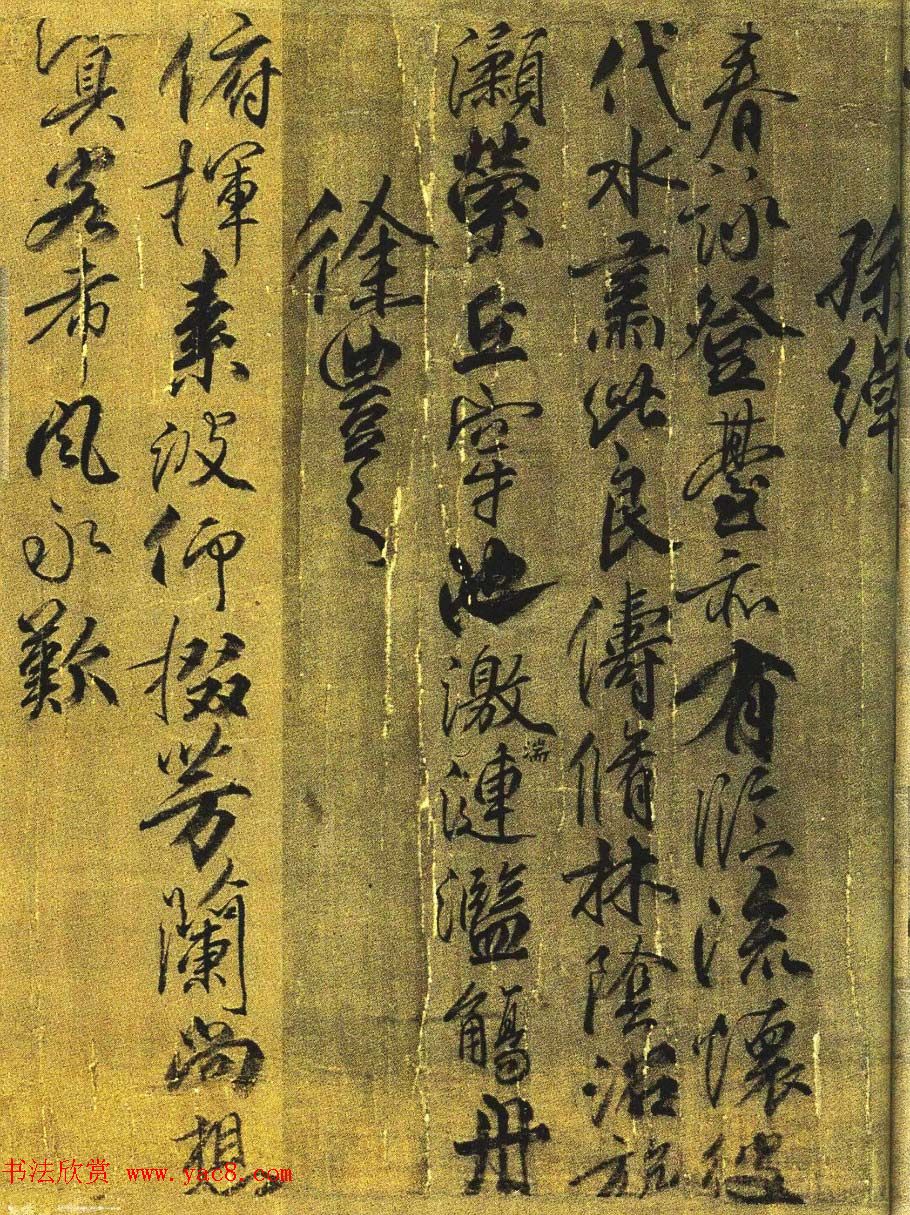 孫綽
春詠登臺亦有臨流懷彼
代水肅此良儔脩林陰沼旋
瀨縈丘穿池激湍漣濫觴舟
徐豐之
俯揮素波仰掇芳蘭尚想
客希風永歎
书法欣赏 www.yac8.com